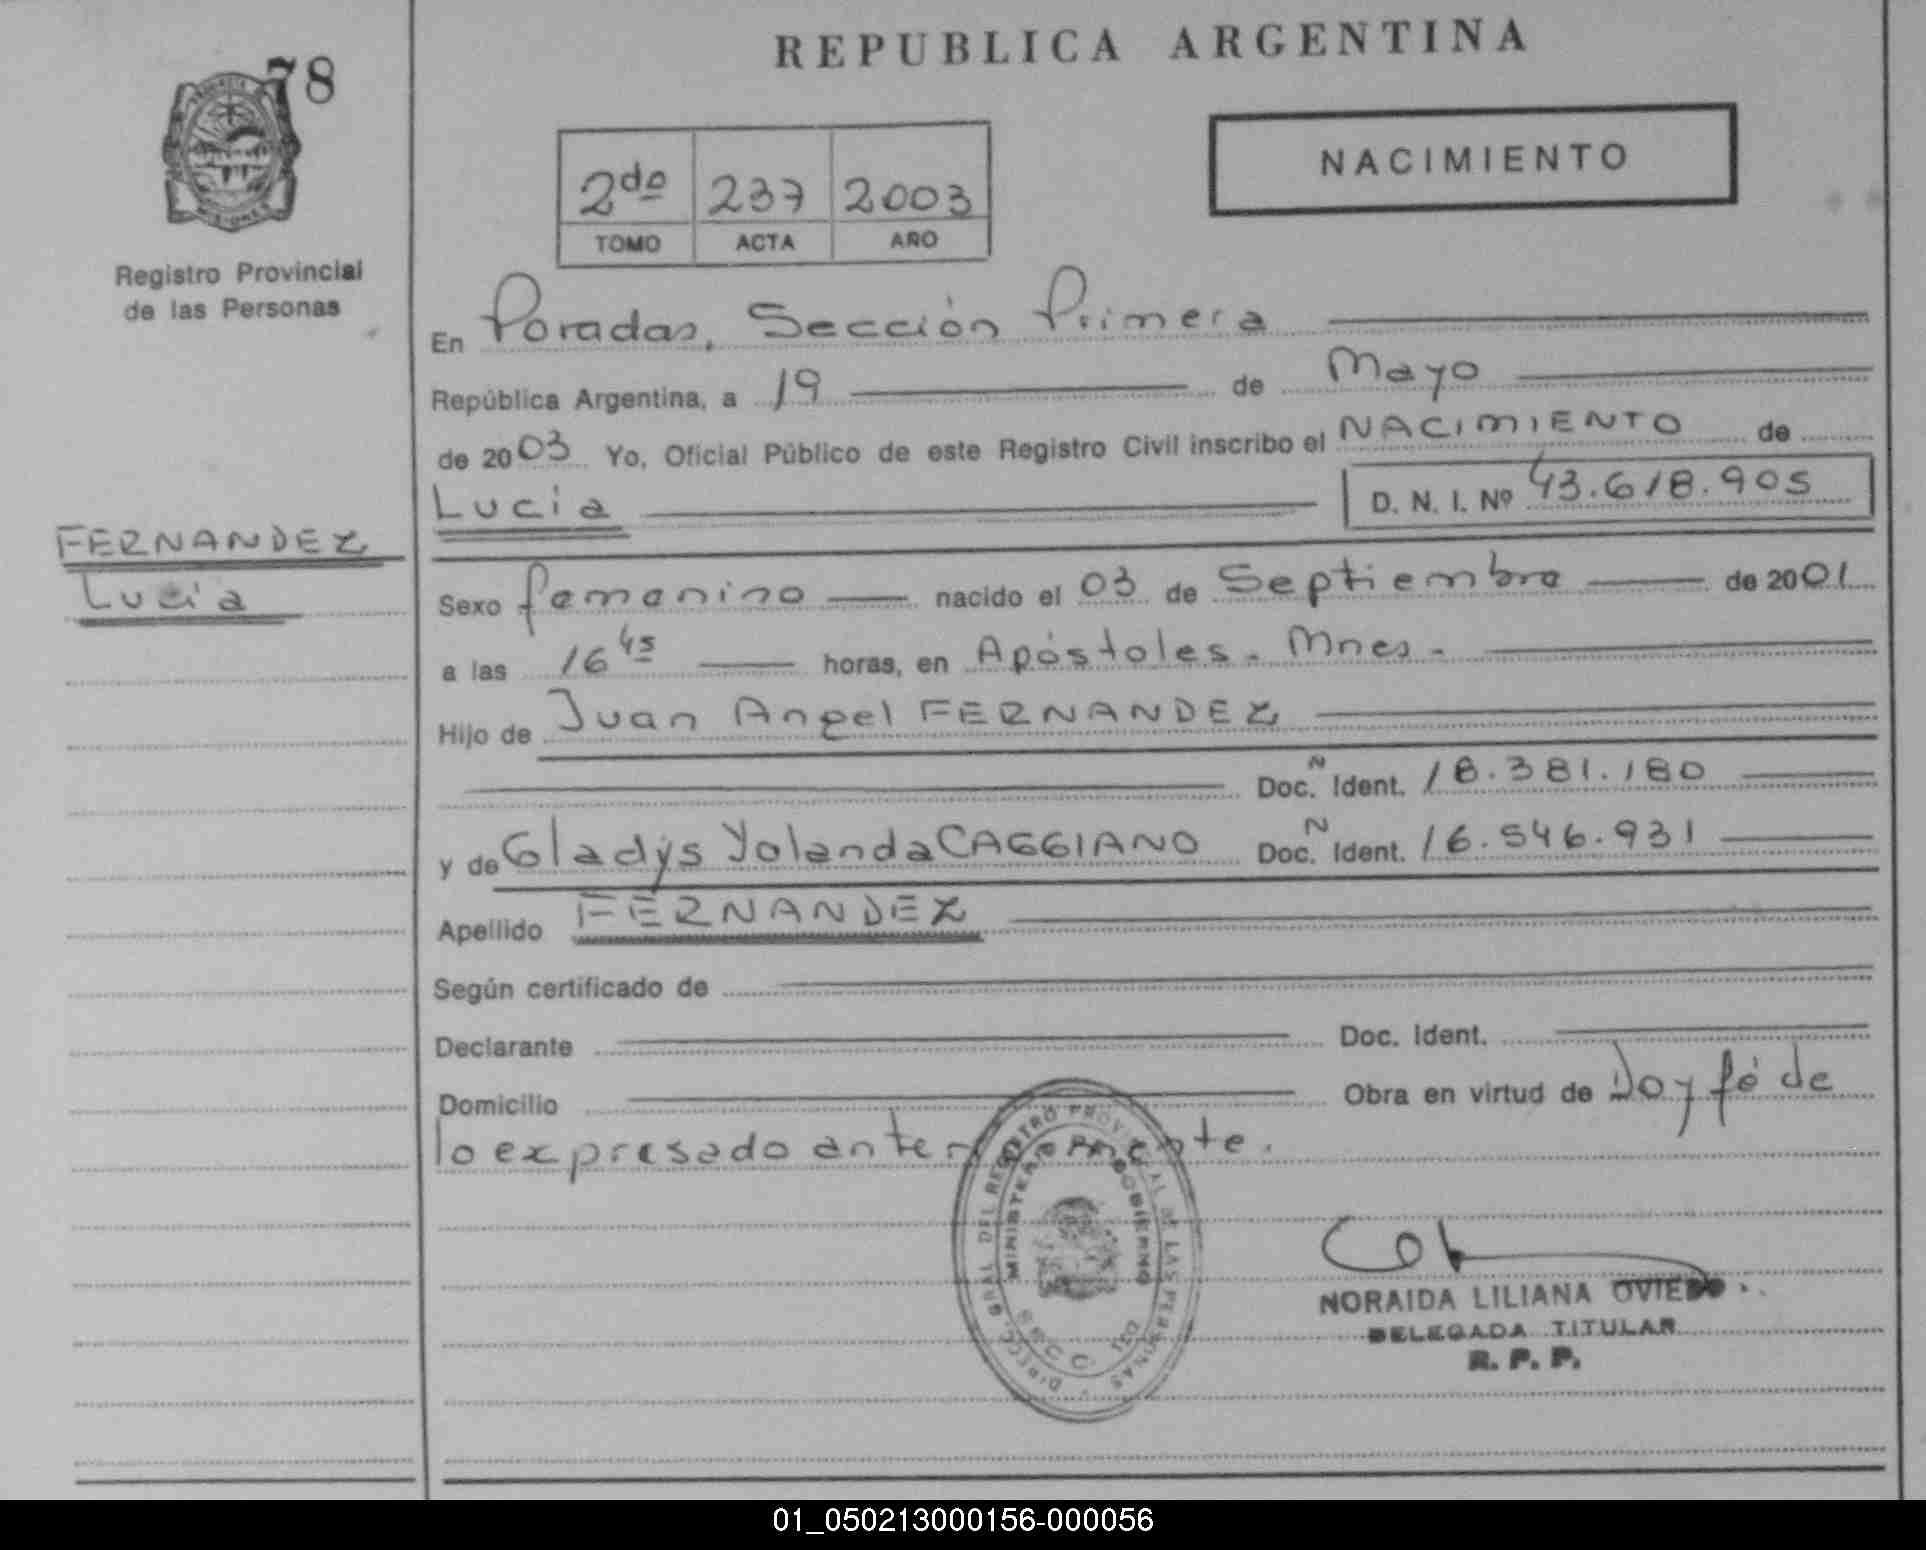 78
REPUBLICA ARGENTINA
NACIMIENTO
2do 237 2003
TOMO ACTA AÑO
Registro Provincial
de las Personas
En Posadas, Sección Primera
República Argentina, a 19 de Mayo
de 2003 Yo, Oficial Público de este Registro Civil inscribo el NACIMIENTO de
Lucia D. N. I. Nº 43.618.905
FERNANDEZ
Lucia
Sexo femenino nacido el 03 de Septiembre de 2001
a las 16 45 horas, en Apóstoles - Mnes -
Hijo de Juan Angel FERNANDEZ
Doc. N Ident. 18.381.180
y de Gladys Yolanda CAGGIANO Doc. N Ident. 16.546.931
Apellido FERNANDEZ
Según certificado de
Declarante Doc. Ident.
Domicilio Obra en virtud de Doy fé de
lo expresado anteriormente.
DIRECC. GRAL DEL REGISTRO PROVINCIAL DE LAS PERSONAS
MINISTERIO DE GOBIERNO
NORAIDA LILIANA OVIEDO
DELEGADA TITULAR
R. P. P.
01_050213000156-000056